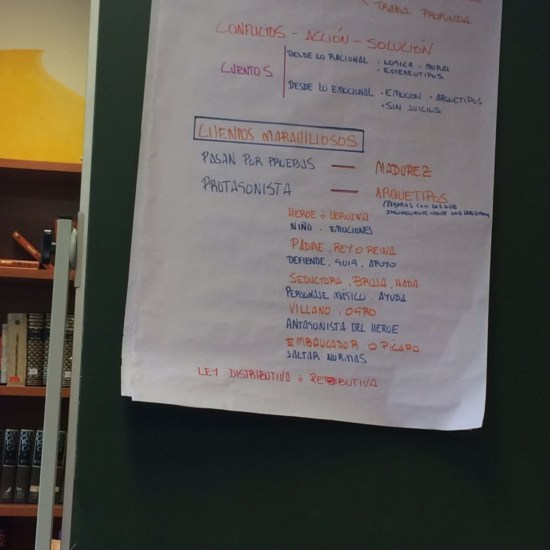 TRAMA PROFUNDA
CONFLICTOS - ACCIÓN - SOLUCIÓN
CUENTOS
DESDE LO RACIONAL • LOGICA • MORAL
• ESTEREOTIPOS
DESDE LO EMOCIONAL • EMOCION • ARQUETIPOS
• SIN JUICIOS
CUENTOS MARAVILLOSOS
PASAN POR PRUEBAS — MADUREZ
PROTAGONISTA — ARQUETIPOS
HEROE o HEROINA
NIÑO. EMOCIONES
PADRE, REY O REINA
DEFIENDE, GUIA, APOYO
SEDUCTORA, BRUJA, HADA
PERSONAJE MÁGICO. AYUDA
VILLANO. OGRO
ANTAGONISTA DEL HEROE
EMBAUCADOR O PÍCARO
SALTAR NORMAS
LEY DISTRIBUTIVA o RETRIBUTIVA